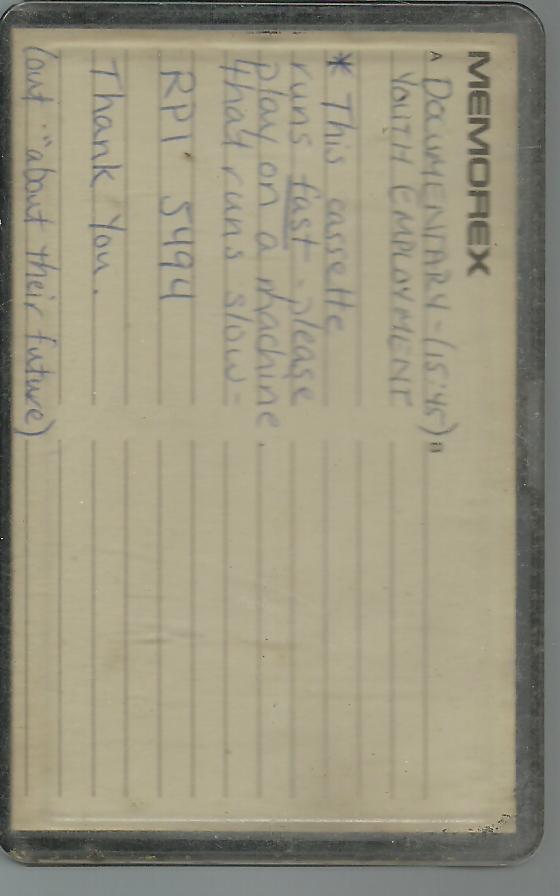 MEMOREX
A DOCUMENTARY - (15:45) B
YOUTH EMPLOYMENT
* This cassette
runs fast - please
play on a machine
that runs slow -
RPI 5494
Thank You.
(out: "about their future)